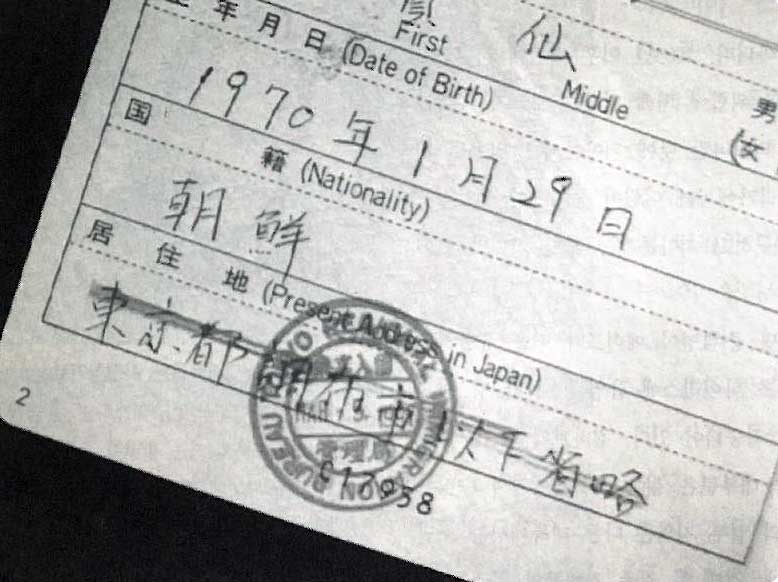 仙
First Middle
生年月日 (Date of Birth) 男
1970年1月29日 女
国籍 (Nationality)
朝鮮
居住地 (Present Address in Japan)
東京都調布市以下省略
TOKYO REGIONAL IMMIGRATION BUREAU
管理局
2